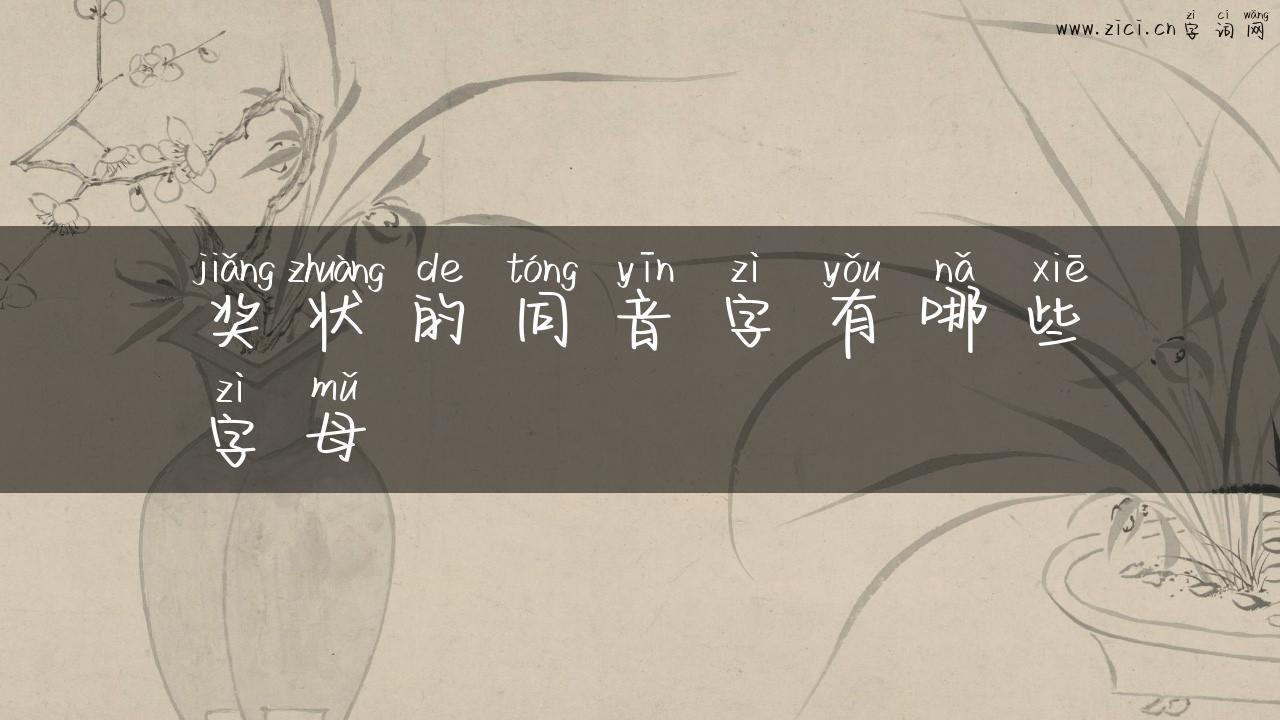 zì cí wǎng
www.zici.cn 字词网
jiǎng zhuàng de tóng yīn zì yǒu nǎ xiē
奖状的同音字有哪些
zì mǔ
字母